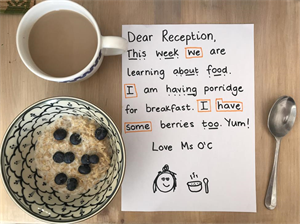 Dear Reception,
This week we are
learning about food.
I am having porridge
for breakfast. I have
some berries too. Yum!
Love Ms O'C